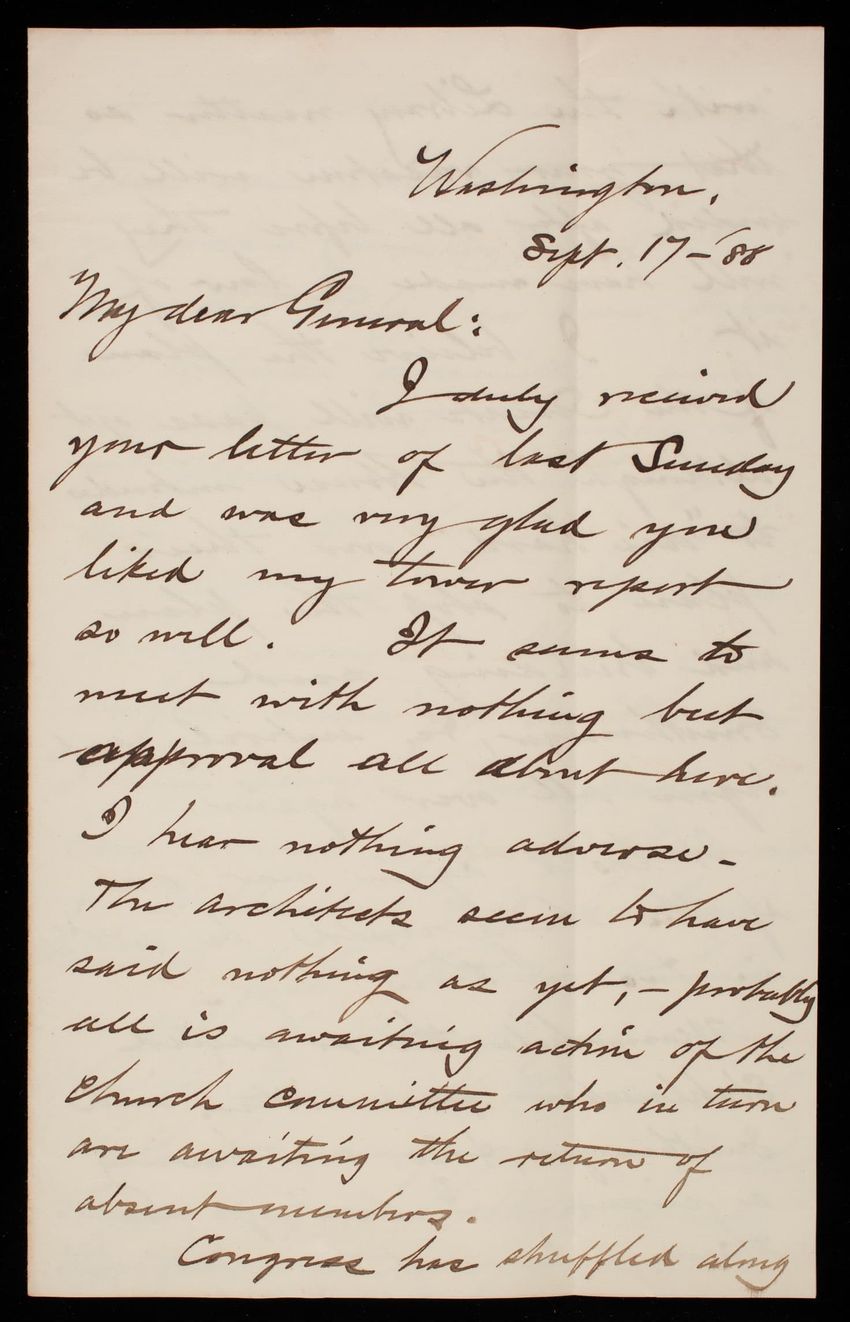 Washington,
Sept. 17 - '88
My dear General:
I duly received
your letter of last Sunday
and was very glad you
liked my tower report
so well. It seems to
meet with nothing but
approval all about here.
I hear nothing adverse -
The architects seem to have
said nothing as yet, - probably
all is awaiting action of the
Church Committee who in turn
are awaiting the return of
absent members.
Congress has shuffled along